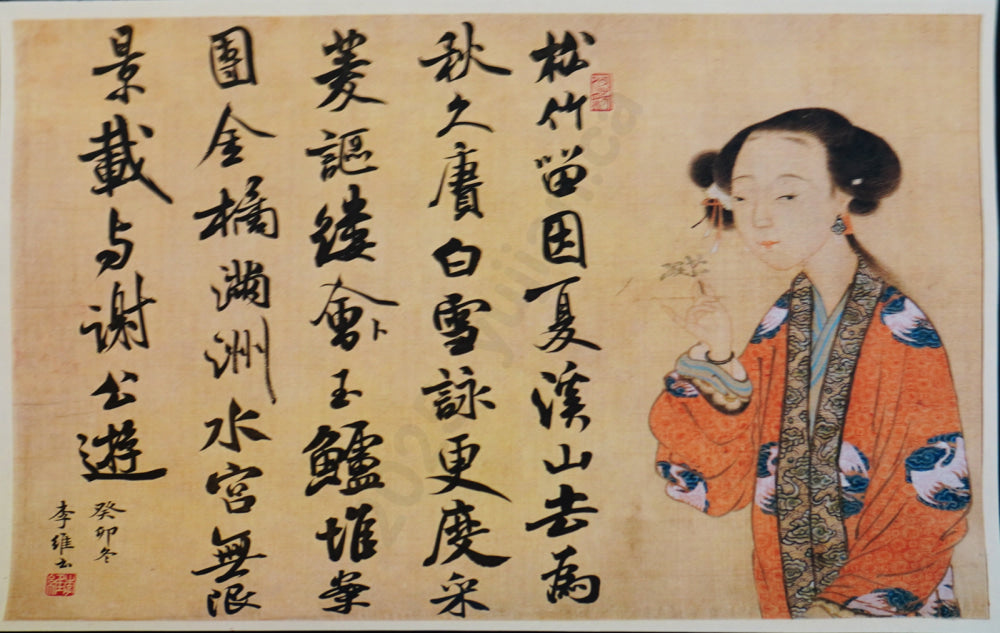 松竹留因夏溪山去為
秋久賡白雪詠更度采
菱謳縷會卜玉鱸堆案
團金橘滿洲水宮無限
景載与謝公遊
癸卯冬
李維书